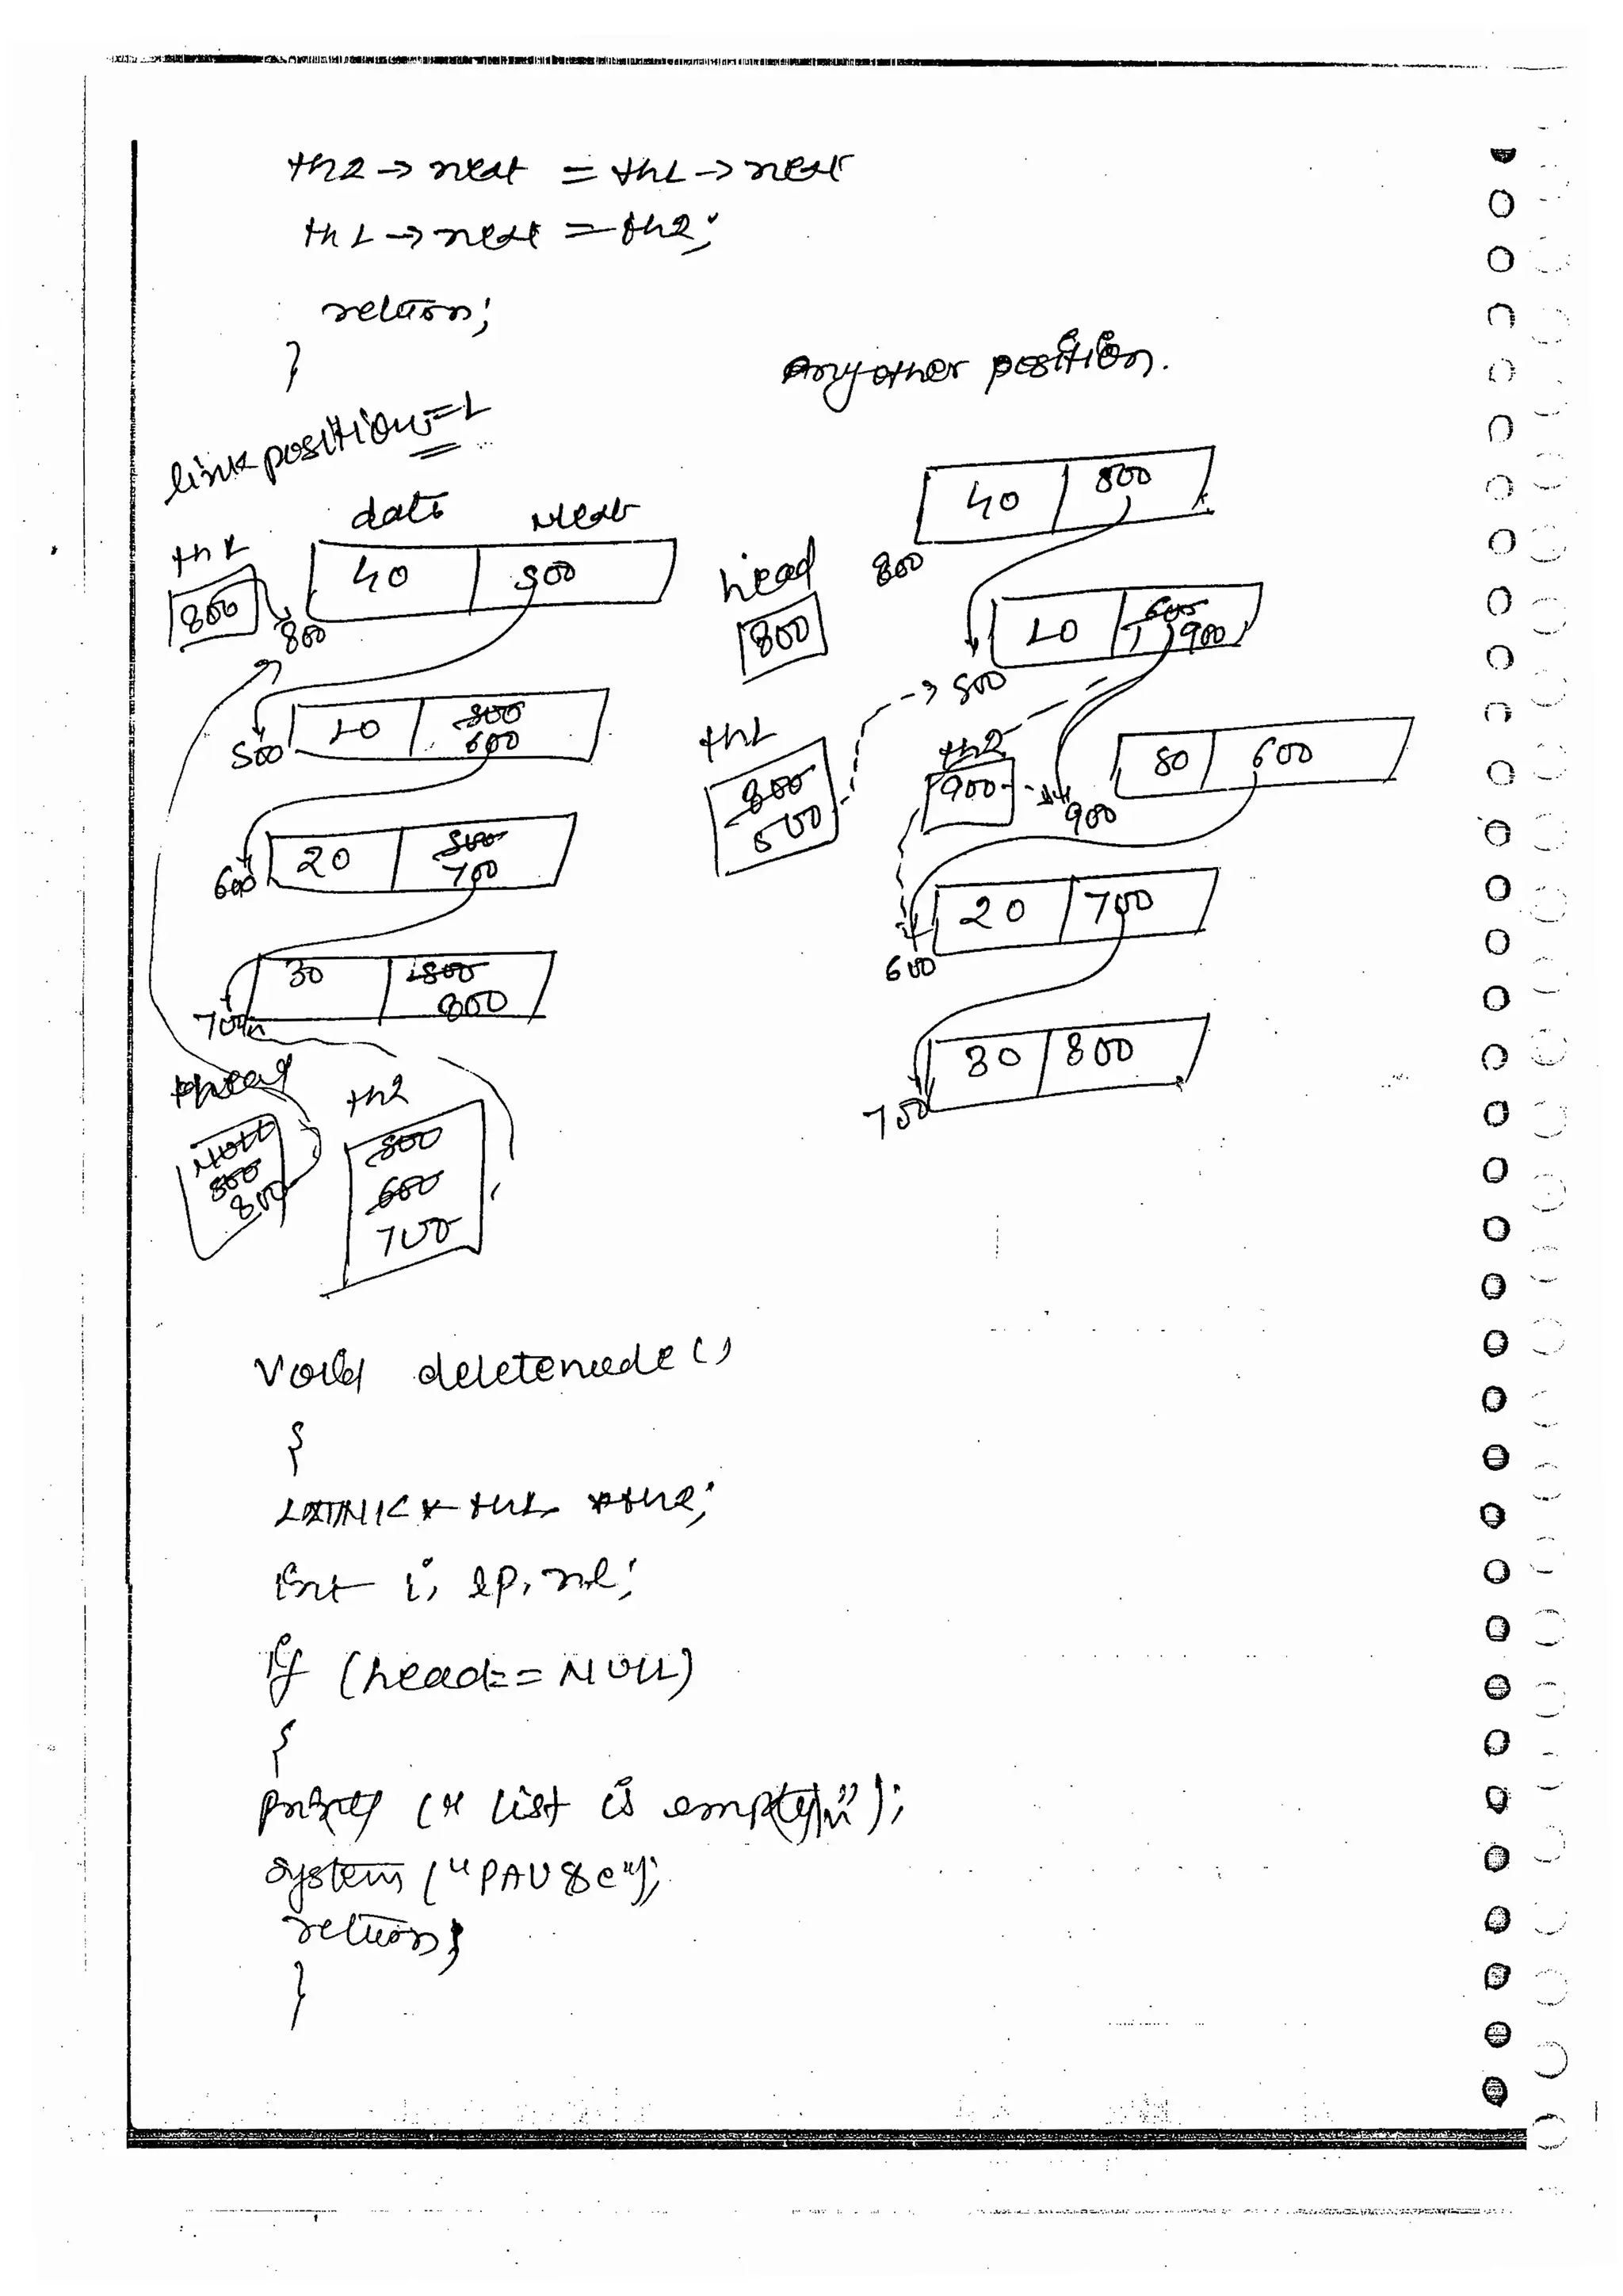 th2 → next = th1 → next
th1 → next = th2;
return;
}
link position = 1
data next
th1
800
40 500
800
10 500 600
500
20 500 700
600
30 500 800
700
head
NULL
500
800
th2
500
600
700
Any other position.
40 500
800
head
800
10 600 900
500
th1
800
500
th2
900
80 600
900
20 700
600
30 800
700
void deletenode ()
{
th1 *th2;
int i, lp, nl;
if (head == NULL)
{
printf (" list is empty\n");
system ("PAUSe");
return;
}